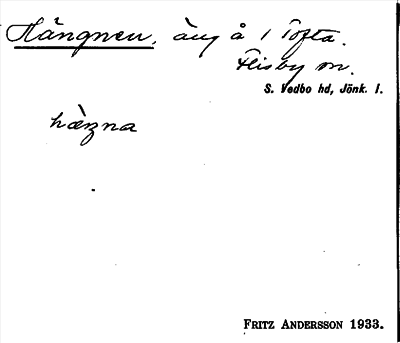 Hängnen, äng å 1 Tofta.
Flisby sn.
S. Vedbo hd, Jönk. l.
hæ̀ŋna
FRITZ ANDERSSON 1933.